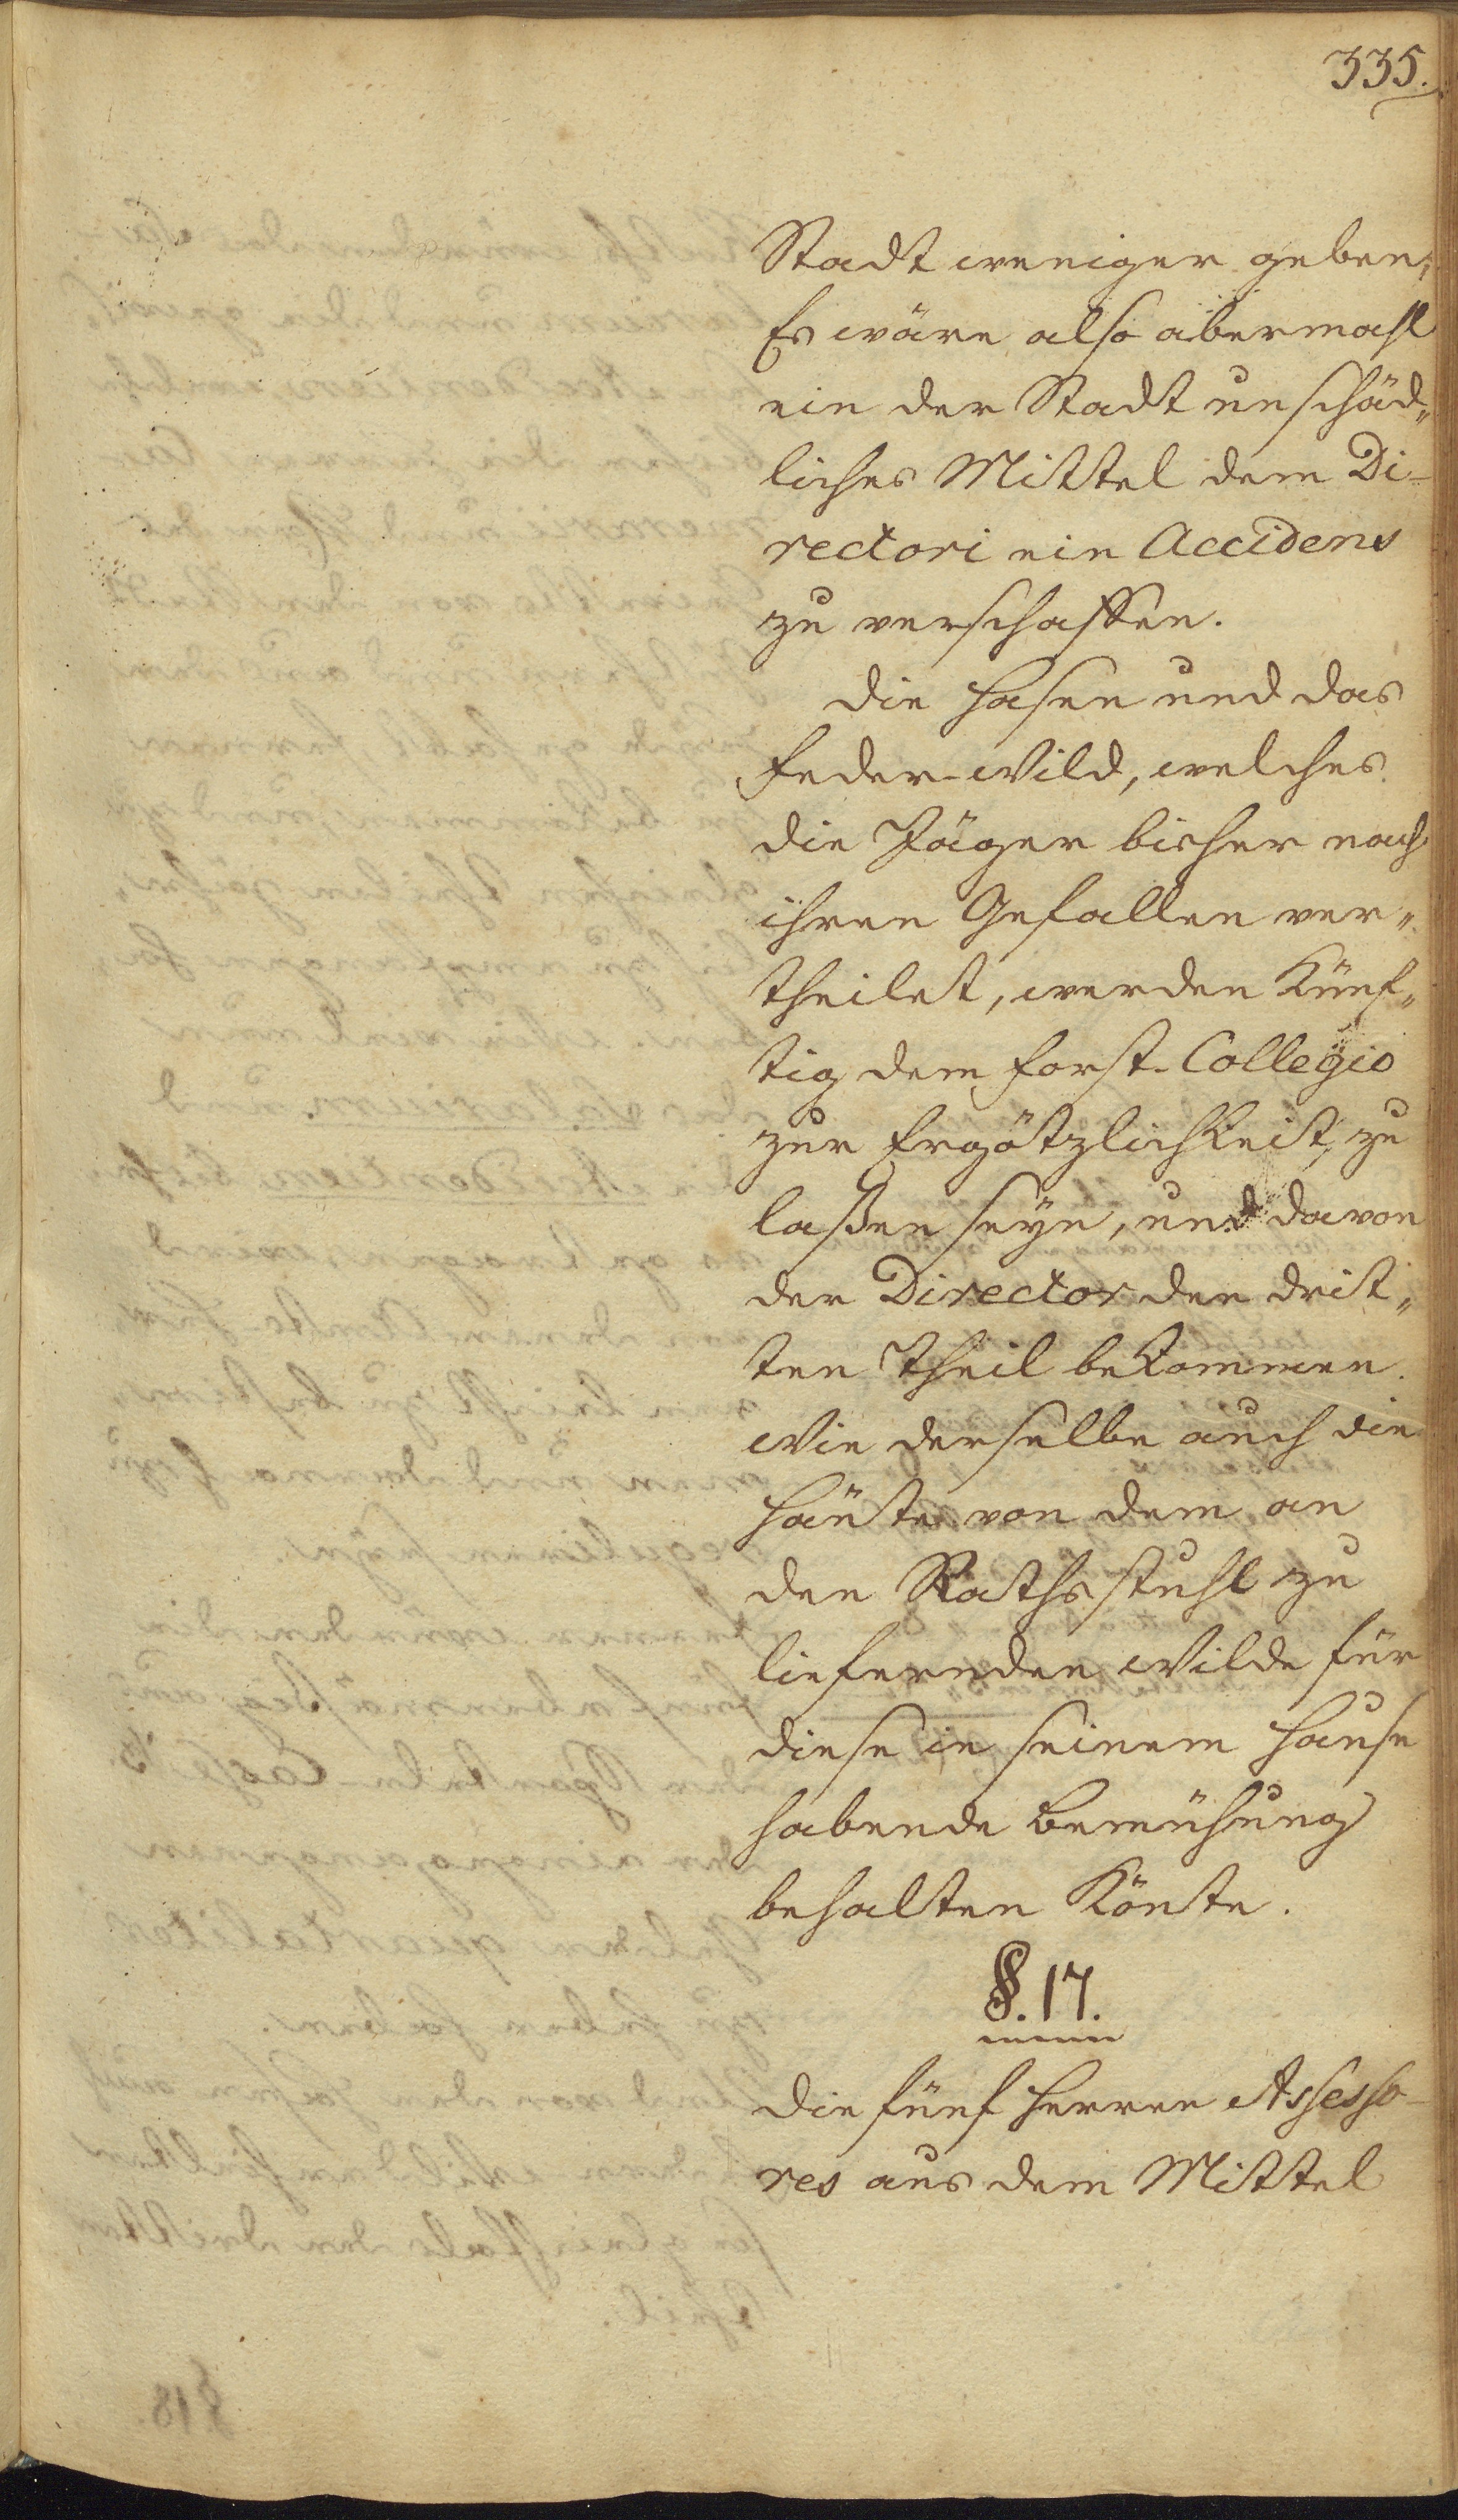 335.
Stadt weniger geben,
Es wäre also abermahl
ein der Stadt unschäd„
liches Mittel dem Di-
rectori ein Accidens
zu verschaffen.
Die Hasen und das
Feder-Wild, welches
die Jäger bisher nach
ihren Gefallen ver„
theilet, werden Künf„
tig dem Forst-Collegio
zur Ergötzlichkeit, zu
laßen seyn, und davon
der Director den drit„
ten Theil beKommen.
Wie derselbe auch die
Häute von dem an
den Rathsstuhl zu
liefernden Wilde für
diese in seinem Hause
habende Bemühung
behalten Könte.
§. 17.
Die fünf Herren Assesso-
res aus dem Mittel